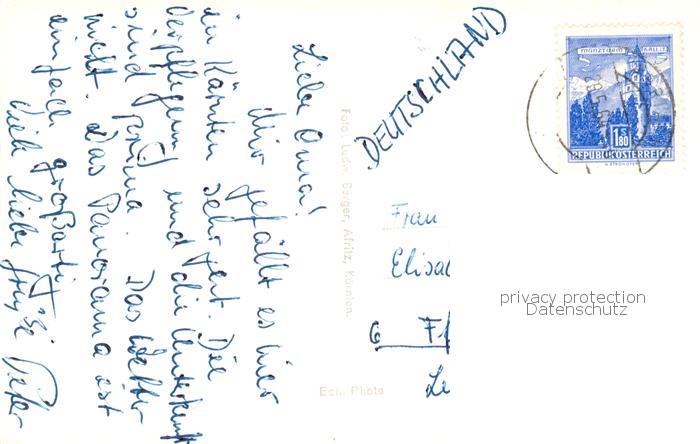 Liebe Oma!
Mir gefällt es hier
in Kärnten sehr gut. Die
Verpflegung und die Unterkunft
sind prima. Das Wetter
nicht. Das Panorama ist
einfach großartig
Viele liebe Grüße Peter
Foto: Ludw. Gerger, Afritz, Kärnten.
Echt Photo
DEUTSCHLAND
MÜNZTURM HALL i. T.
1 S 80
REPUBLIK ÖSTERREICH
Frau
Elisa
6 F
Le
privacy protection
Datenschutz